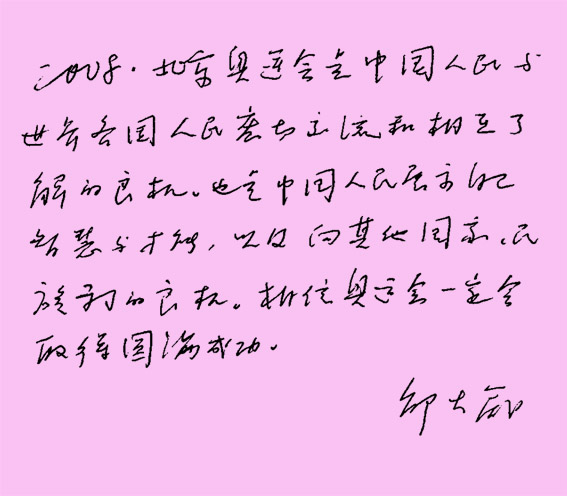 2008.北京奥运会是中国人民与
世界各国人民密切交流和相互了
解的良机。也是中国人民展示自己
智慧与才能,以及向其他国家、民
族学习的良机。相信奥运会一定会
取得圆满成功。
邹大